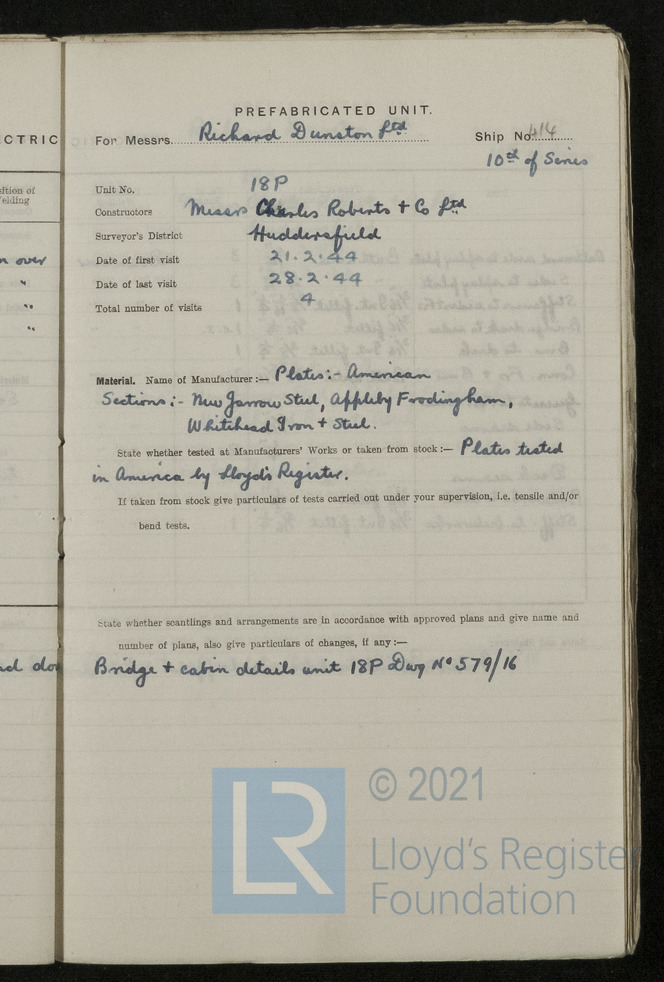 CTRIC
ition of
elding
n over
"
"
"
nd do
PREFABRICATED UNIT.
For Messrs. Richard Dunston Ltd Ship No. 414
10th of Series
Unit No. 18P
Constructors Messrs Charles Roberts + Co Ltd
Surveyor's District Huddersfield
Date of first visit 21.2.44
Date of last visit 28.2.44
Total number of visits 4
Material. Name of Manufacturer:— Plates:- American
Sections:- New Jarrow Steel, Appleby Frodingham,
Whitehead Iron + Steel.
State whether tested at Manufacturers' Works or taken from stock:— Plates tested
in America by Lloyd's Register.
If taken from stock give particulars of tests carried out under your supervision, i.e. tensile and/or
bend tests.
State whether scantlings and arrangements are in accordance with approved plans and give name and
number of plans, also give particulars of changes, if any:—
Bridge + cabin details unit 18P Dwg No 579/16
LR
© 2021
Lloyd's Register
Foundation